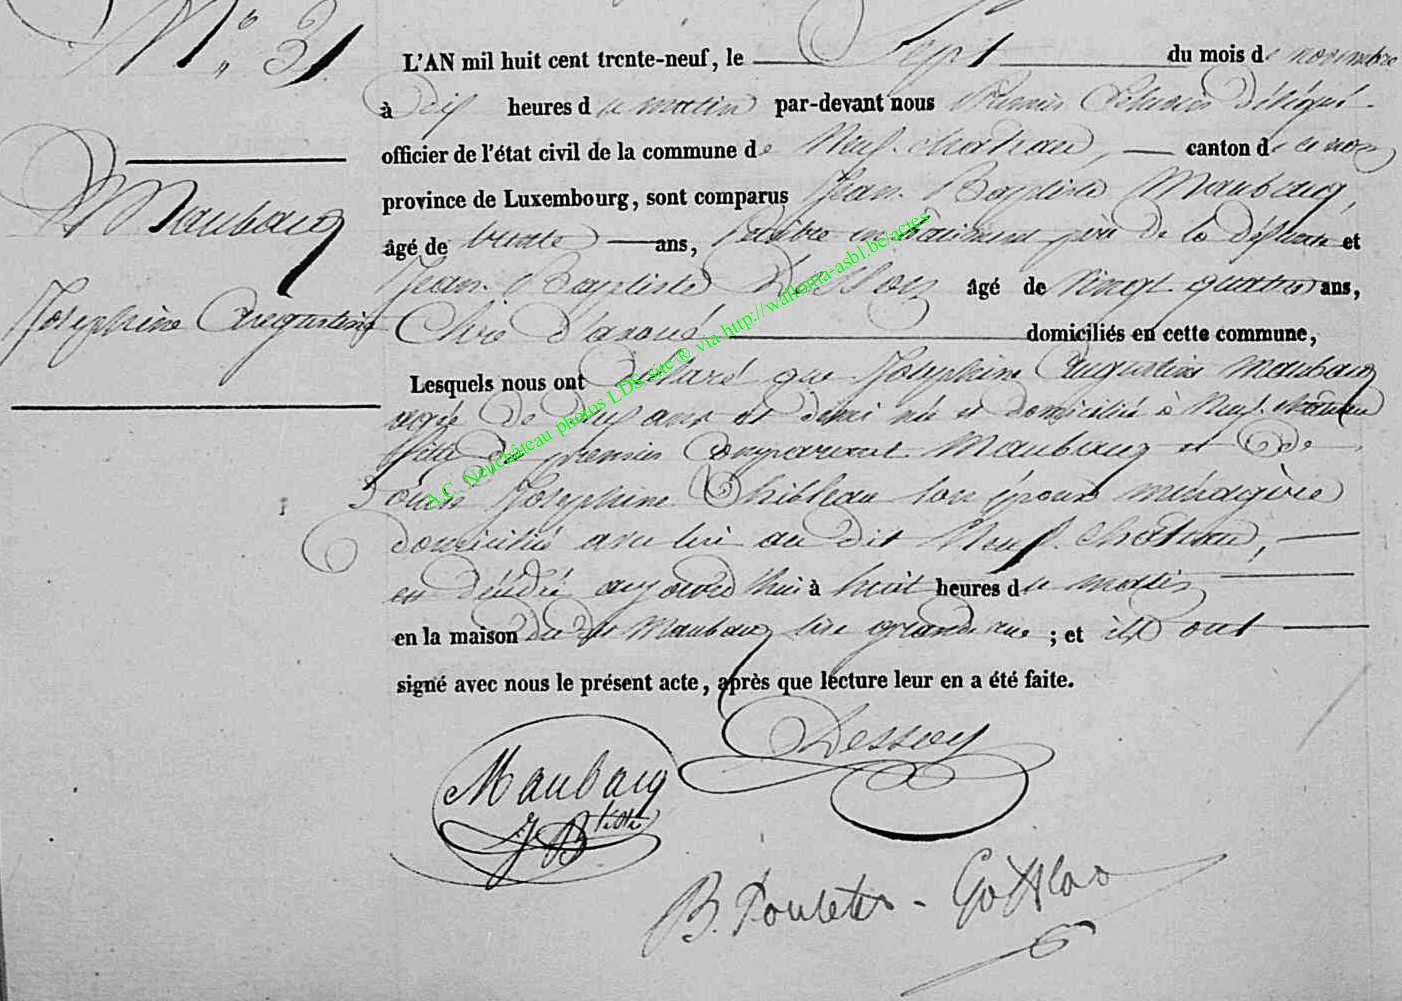 N° 31
L'AN mil huit cent trente-neuf, le Sept du mois de novembre
à dix heures du matin par-devant nous Premier Echevin Délégué
officier de l'état civil de la commune de Neufchateau, canton de ce nom
province de Luxembourg, sont comparus Jean Baptiste Maubacq,
Maubacq
âgé de trente ans, en batiment père de la défunte et
Jean Baptiste Dessoy âgé de vingt quatre ans,
Josephine Augustine
Clerc d'avoué domiciliés en cette commune,
Lesquels nous ont déclaré que Josephine Augustine Maubacq
agée de ans et demi née et domiciliée à Neufchateau
fille du premier comparant Maubacq et de
Josephine Thibleau son épouse ménagère
domiciliée avec lui au dit Neufchateau,
est décédée aujourd'hui à huit heures du matin
en la maison du dit Maubacq grande rue ; et ils ont
signé avec nous le présent acte, après que lecture leur en a été faite.
Dessoy
Maubacq
JBtiste
B. Poncelet - Gofflot
A.C. Neufchâteau photos LDS site ® via http://wallonia-asbl.be/actes